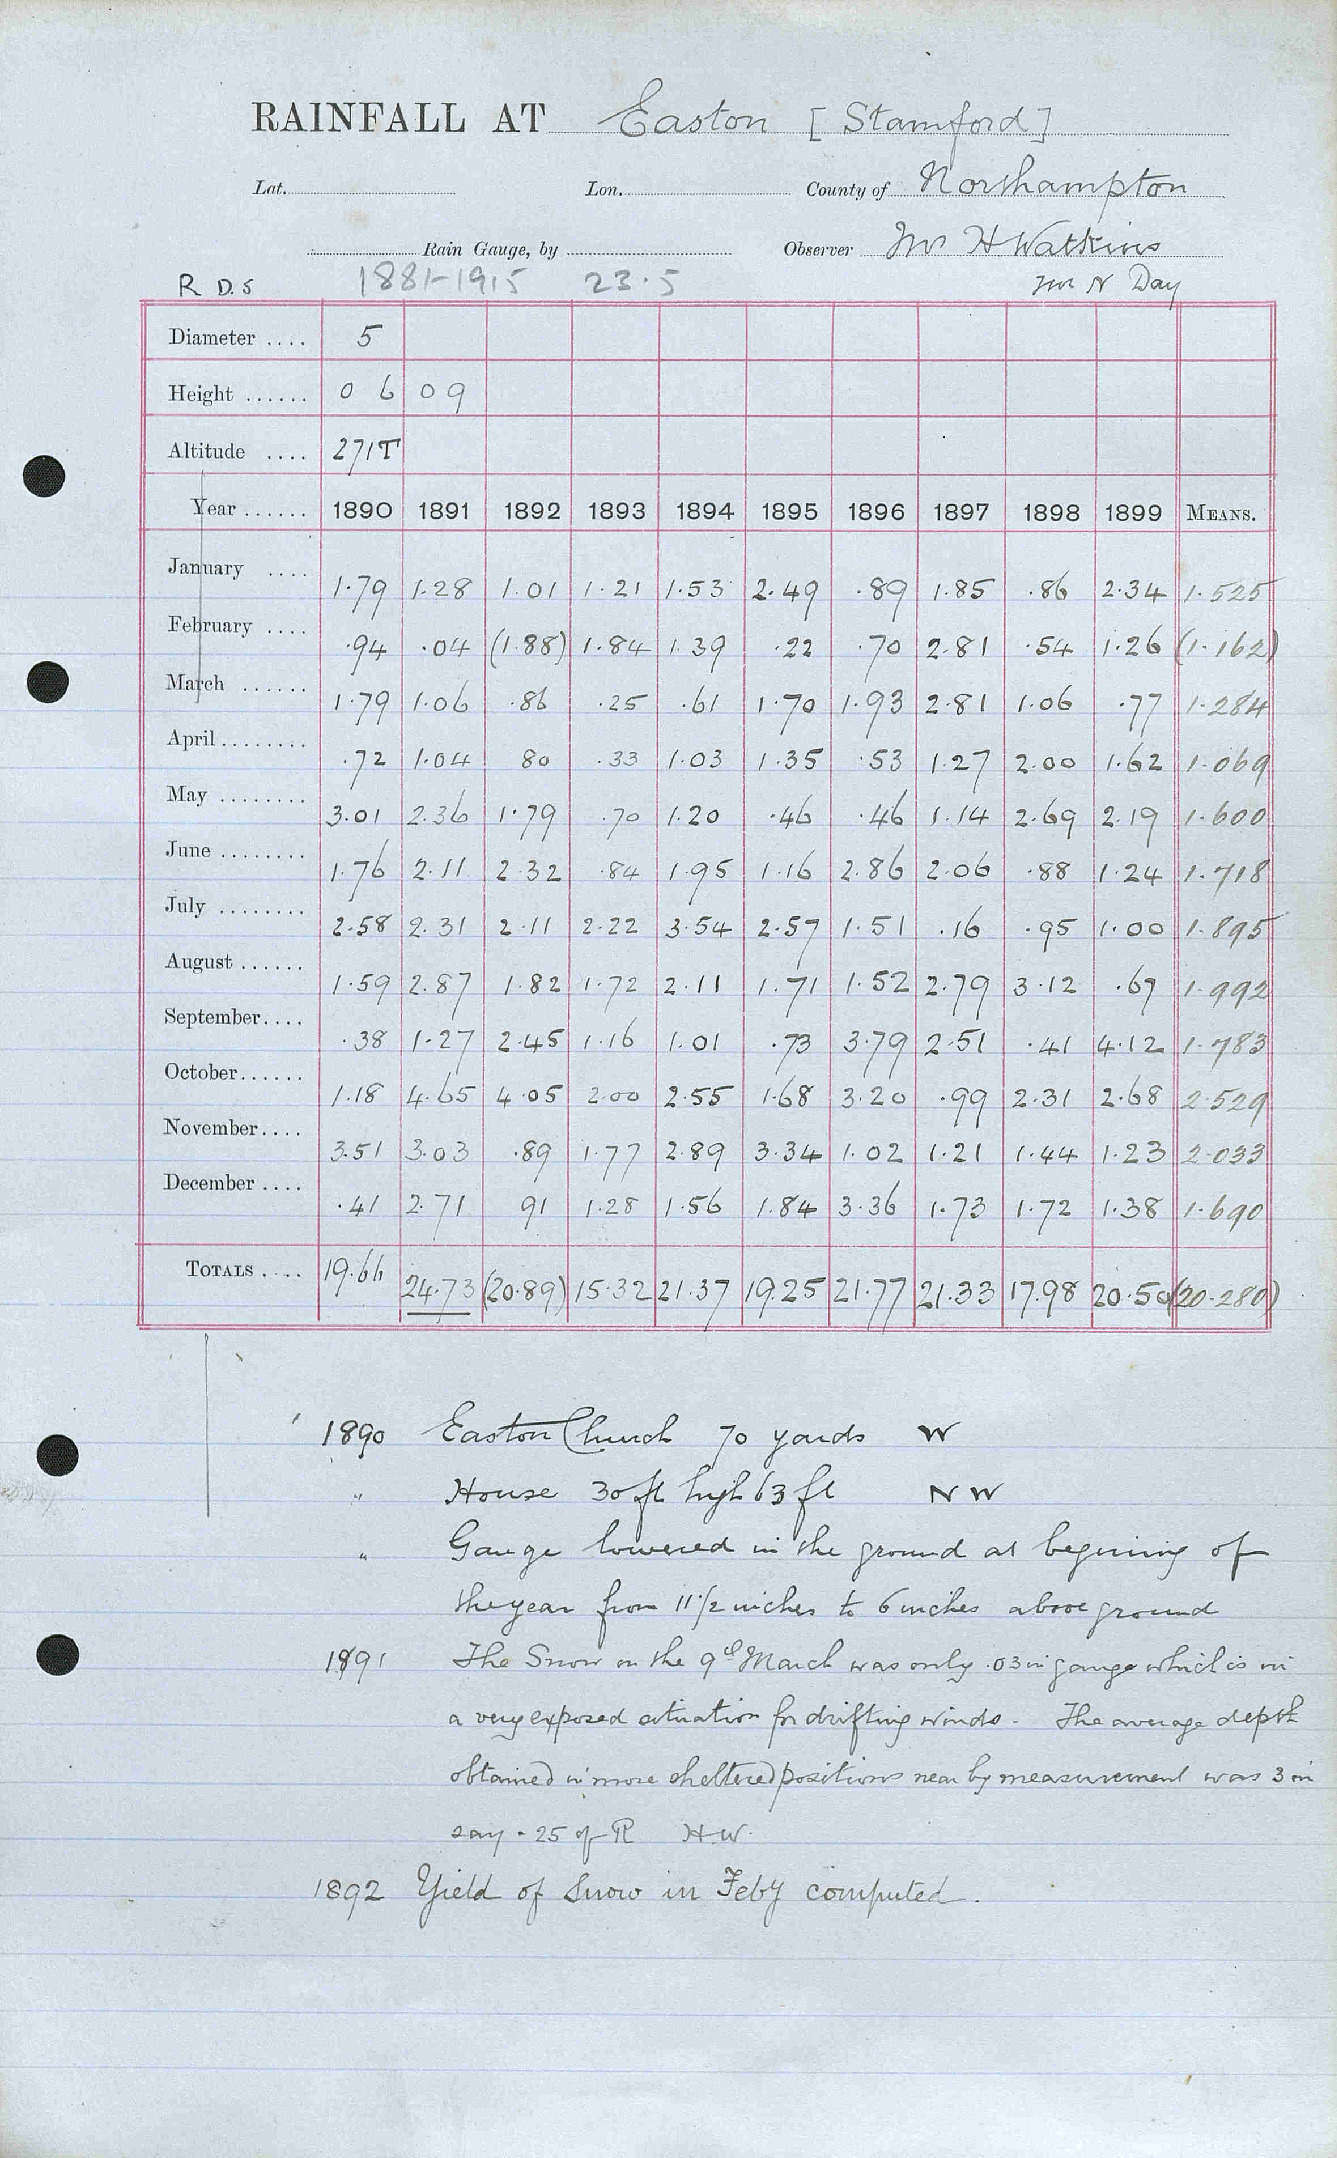 RAINFALL AT Easton [Stamford]
Lat. Lon. County of Northampton
Rain Gauge, by Observer Jno H Watkins
R D. S 1881-1915 23.5 Jno N Day
Diameter .... 5
Height ...... 0 6 0 9
Altitude .... 271T
Year ...... 1890 1891 1892 1893 1894 1895 1896 1897 1898 1899 MEANS.
January .... 1.79 1.28 1.01 1.21 1.53 2.49 .89 1.85 .86 2.34 1.525
February .... .94 .04 (1.88) 1.84 1.39 .22 .70 2.81 .54 1.26 (1.162)
March ...... 1.79 1.06 .86 .25 .61 1.70 1.93 2.81 1.06 .77 1.284
April ........ .72 1.04 80 .33 1.03 1.35 .53 1.27 2.00 1.62 1.069
May ........ 3.01 2.36 1.79 .70 1.20 .46 .46 1.14 2.69 2.19 1.600
June ........ 1.76 2.11 2.32 .84 1.95 1.16 2.86 2.06 .88 1.24 1.718
July ........ 2.58 2.31 2.11 2.22 3.54 2.57 1.51 .16 .95 1.00 1.895
August ...... 1.59 2.87 1.82 1.72 2.11 1.71 1.52 2.79 3.12 .67 1.992
September.... .38 1.27 2.45 1.16 1.01 .73 3.79 2.51 .41 4.12 1.783
October...... 1.18 4.65 4.05 2.00 2.55 1.68 3.20 .99 2.31 2.68 2.529
November.... 3.51 3.03 .89 1.77 2.89 3.34 1.02 1.21 1.44 1.23 2.033
December .... .41 2.71 91 1.28 1.56 1.84 3.36 1.73 1.72 1.38 1.690
TOTALS .... 19.66 24.73 (20.89) 15.32 21.37 19.25 21.77 21.33 17.98 20.50 (20.280)
1890 Easton Church 70 yards W
" House 30 ft high 63 ft N W
" Gauge lowered in the ground at begining of
the year from 11 1/2 inches to 6 inches above ground
1891 The Snow on the 9th March was only .03 in gauge which is in
a very exposed situation for drifting winds. The average depth
obtained in more sheltered positions near by measurement was 3 in
say .25 of R H.W.
1892 Yield of Snow in Feby computed.